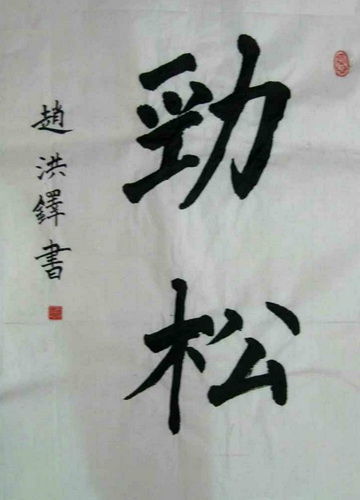 勁松
趙洪鐸書